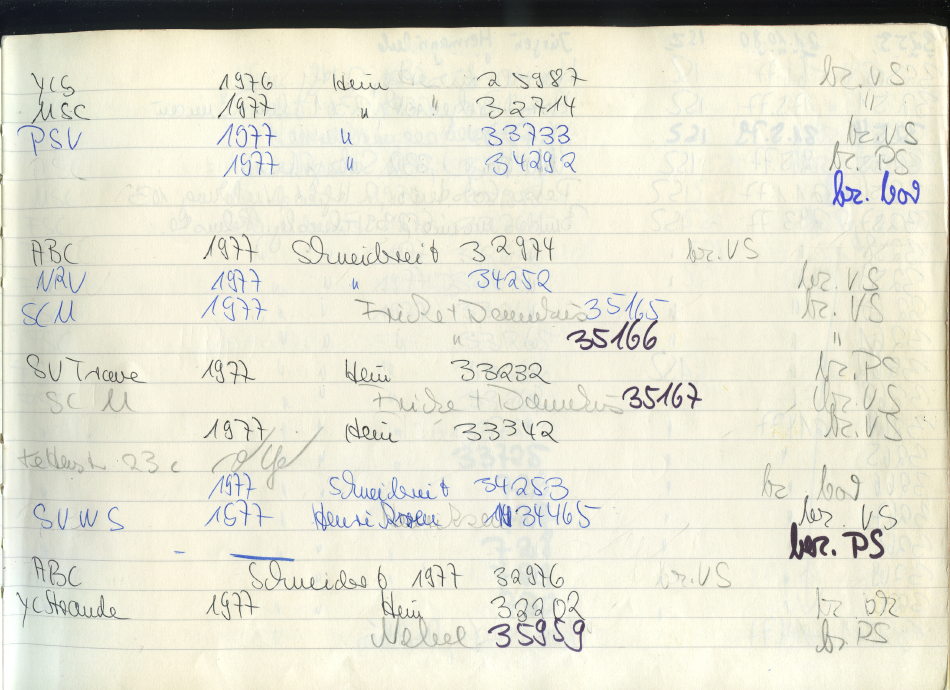 YCS 1976 Hein 25987 bz. VS
MSC 1977 " " 32714 "
PSV 1977 " 33733 bz. VS
1977 " 34292 bz. PS
bz. bar
ABC 1977 Schneidereit 32974 bz. VS
NRV 1977 " 34252 bz. VS
SCM 1977 Fricke + Dannhus 35165 bz. VS
" 35166 "
SV Trave 1977 Hein 33232 bz. PS
SC M Fricke + Dannhus 35167 bz. VS
1977 Hein 33342 bz. VS
23 c
1977 Schneidereit 34253 bz. bar
SVWS 1977 Henri 34465 bez. VS
bez. PS
ABC Schneidereit 1977 32976 bz. VS
YC Strande 1977 Hein 32202 bz
Nebel 35959 bz PS